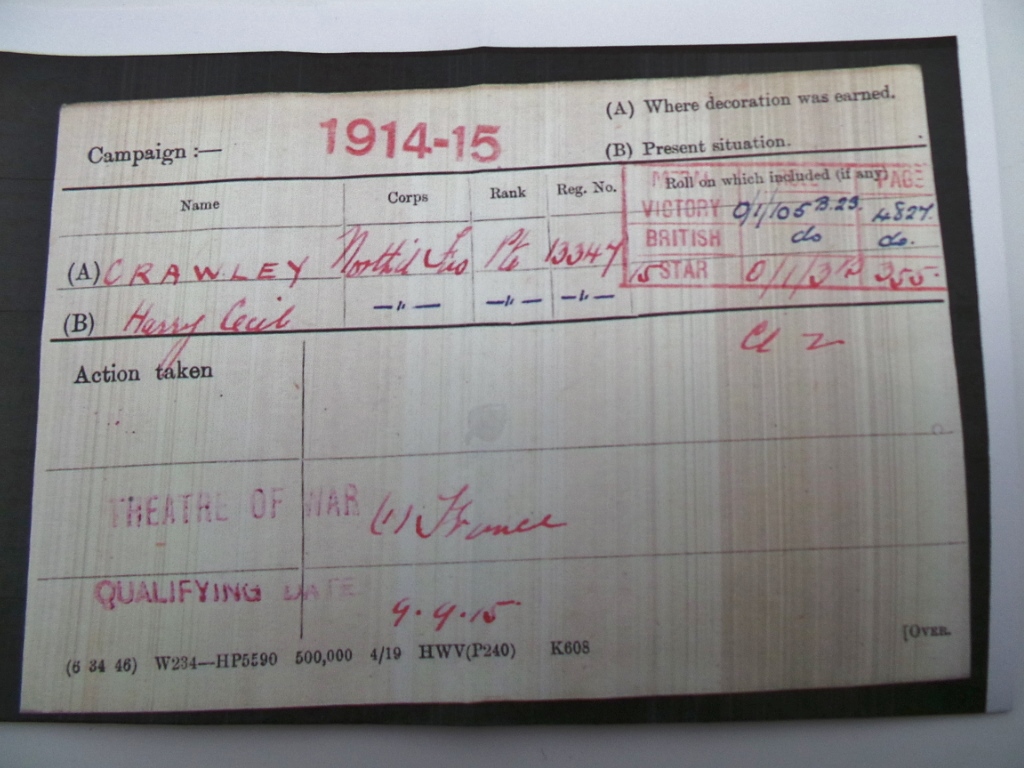 (A) Where decoration was earned.
Campaign :— 1914-15
(B) Present situation.
Name Corps Rank Reg. No. Roll on which included (if any)
PAGE
VICTORY O/1/105 B.23. 4827.
BRITISH do do.
(A) CRAWLEY North'd Fus Pte 13347
15 STAR O/1/3 B 355.
(B) Harry Cecil —"— —"— —"—
Cl Z
Action taken
THEATRE OF WAR (1) France
QUALIFYING DATE 9.9.15
[OVER.
(6 34 46) W234—HP5590 500,000 4/19 HWV(P240) K608